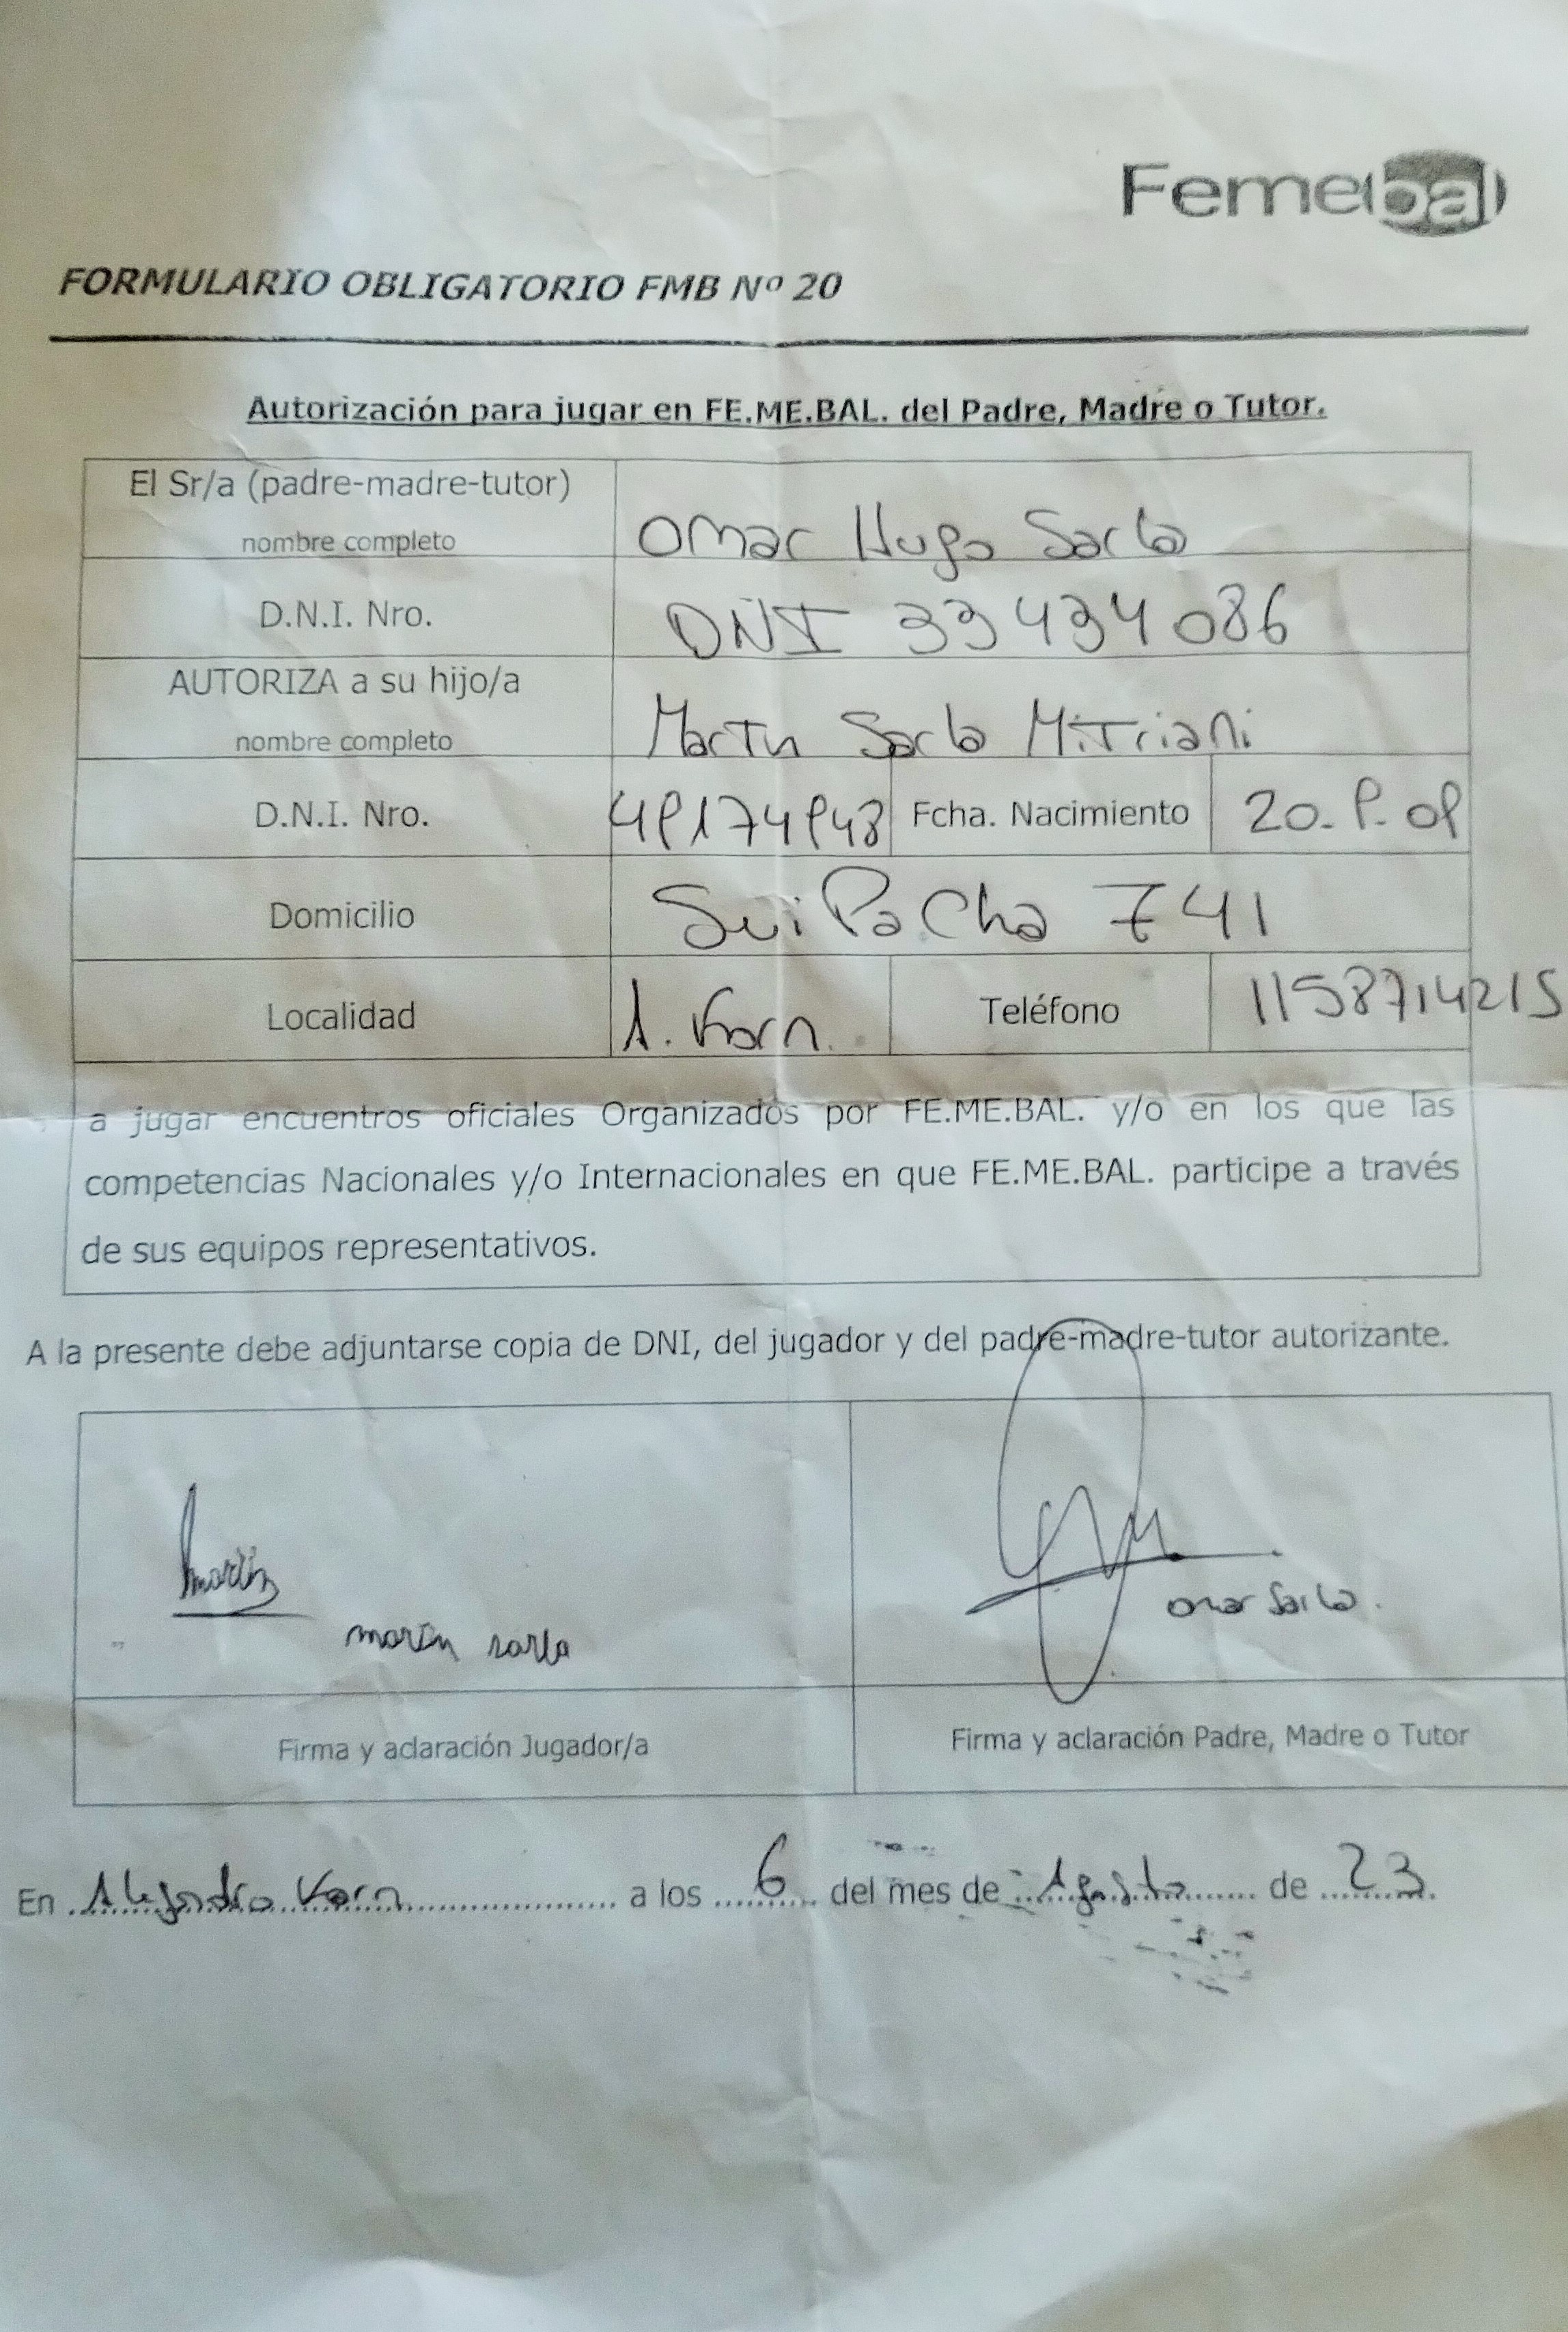 Femebal
FORMULARIO OBLIGATORIO FMB Nº 20
Autorización para jugar en FE.ME.BAL. del Padre, Madre o Tutor.
El Sr/a (padre-madre-tutor)
nombre completo
Omar Hugo Sarlo
D.N.I. Nro.
DNI 33434086
AUTORIZA a su hijo/a
nombre completo
Martin Sarlo Mitriani
D.N.I. Nro.
49174948
Fcha. Nacimiento
20-9-09
Domicilio
SuiPaCha 741
Localidad
A. Korn.
Teléfono
1158714215
a jugar encuentros oficiales Organizados por FE.ME.BAL. y/o en los que las
competencias Nacionales y/o Internacionales en que FE.ME.BAL. participe a través
de sus equipos representativos.
A la presente debe adjuntarse copia de DNI, del jugador y del padre-madre-tutor autorizante.
martin
martin sarlo
Omar Sarlo.
Firma y aclaración Jugador/a
Firma y aclaración Padre, Madre o Tutor
En Alejandro Korn a los 6 del mes de Agosto de 23.